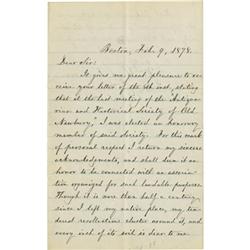 Boston, Feb. 9, 1878.
Dear Sir:
It gives me great pleasure to re-
ceive your letter of the 8th inst, stating
that at the last meeting of the "Antiqua-
rian and Historical Society of Old
Newbury," I was elected an honorary
member of said Society. For this mark
of personal respect I return my sincere
acknowledgments, and shall deem it an
honor to be connected with an associa-
tion organized for such laudable purposes.
Though it is more than half a century
since I left my native place, my ten-
derest recollections cluster around it, and
every inch of its soil is dear to me